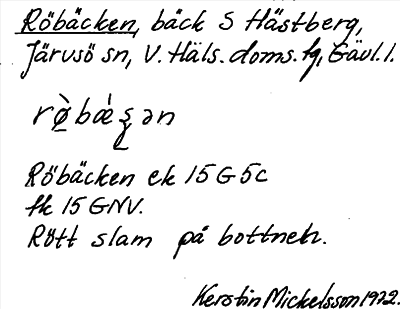 Röbäcken, bäck S Hästberg,
Järvsö sn, V. Häls. doms. tg, Gävl. l.
Röbäcken ek 15G5c
tk 15 GNV.
Rött slam på bottnen.
Kerstin Mickelsson 1972.